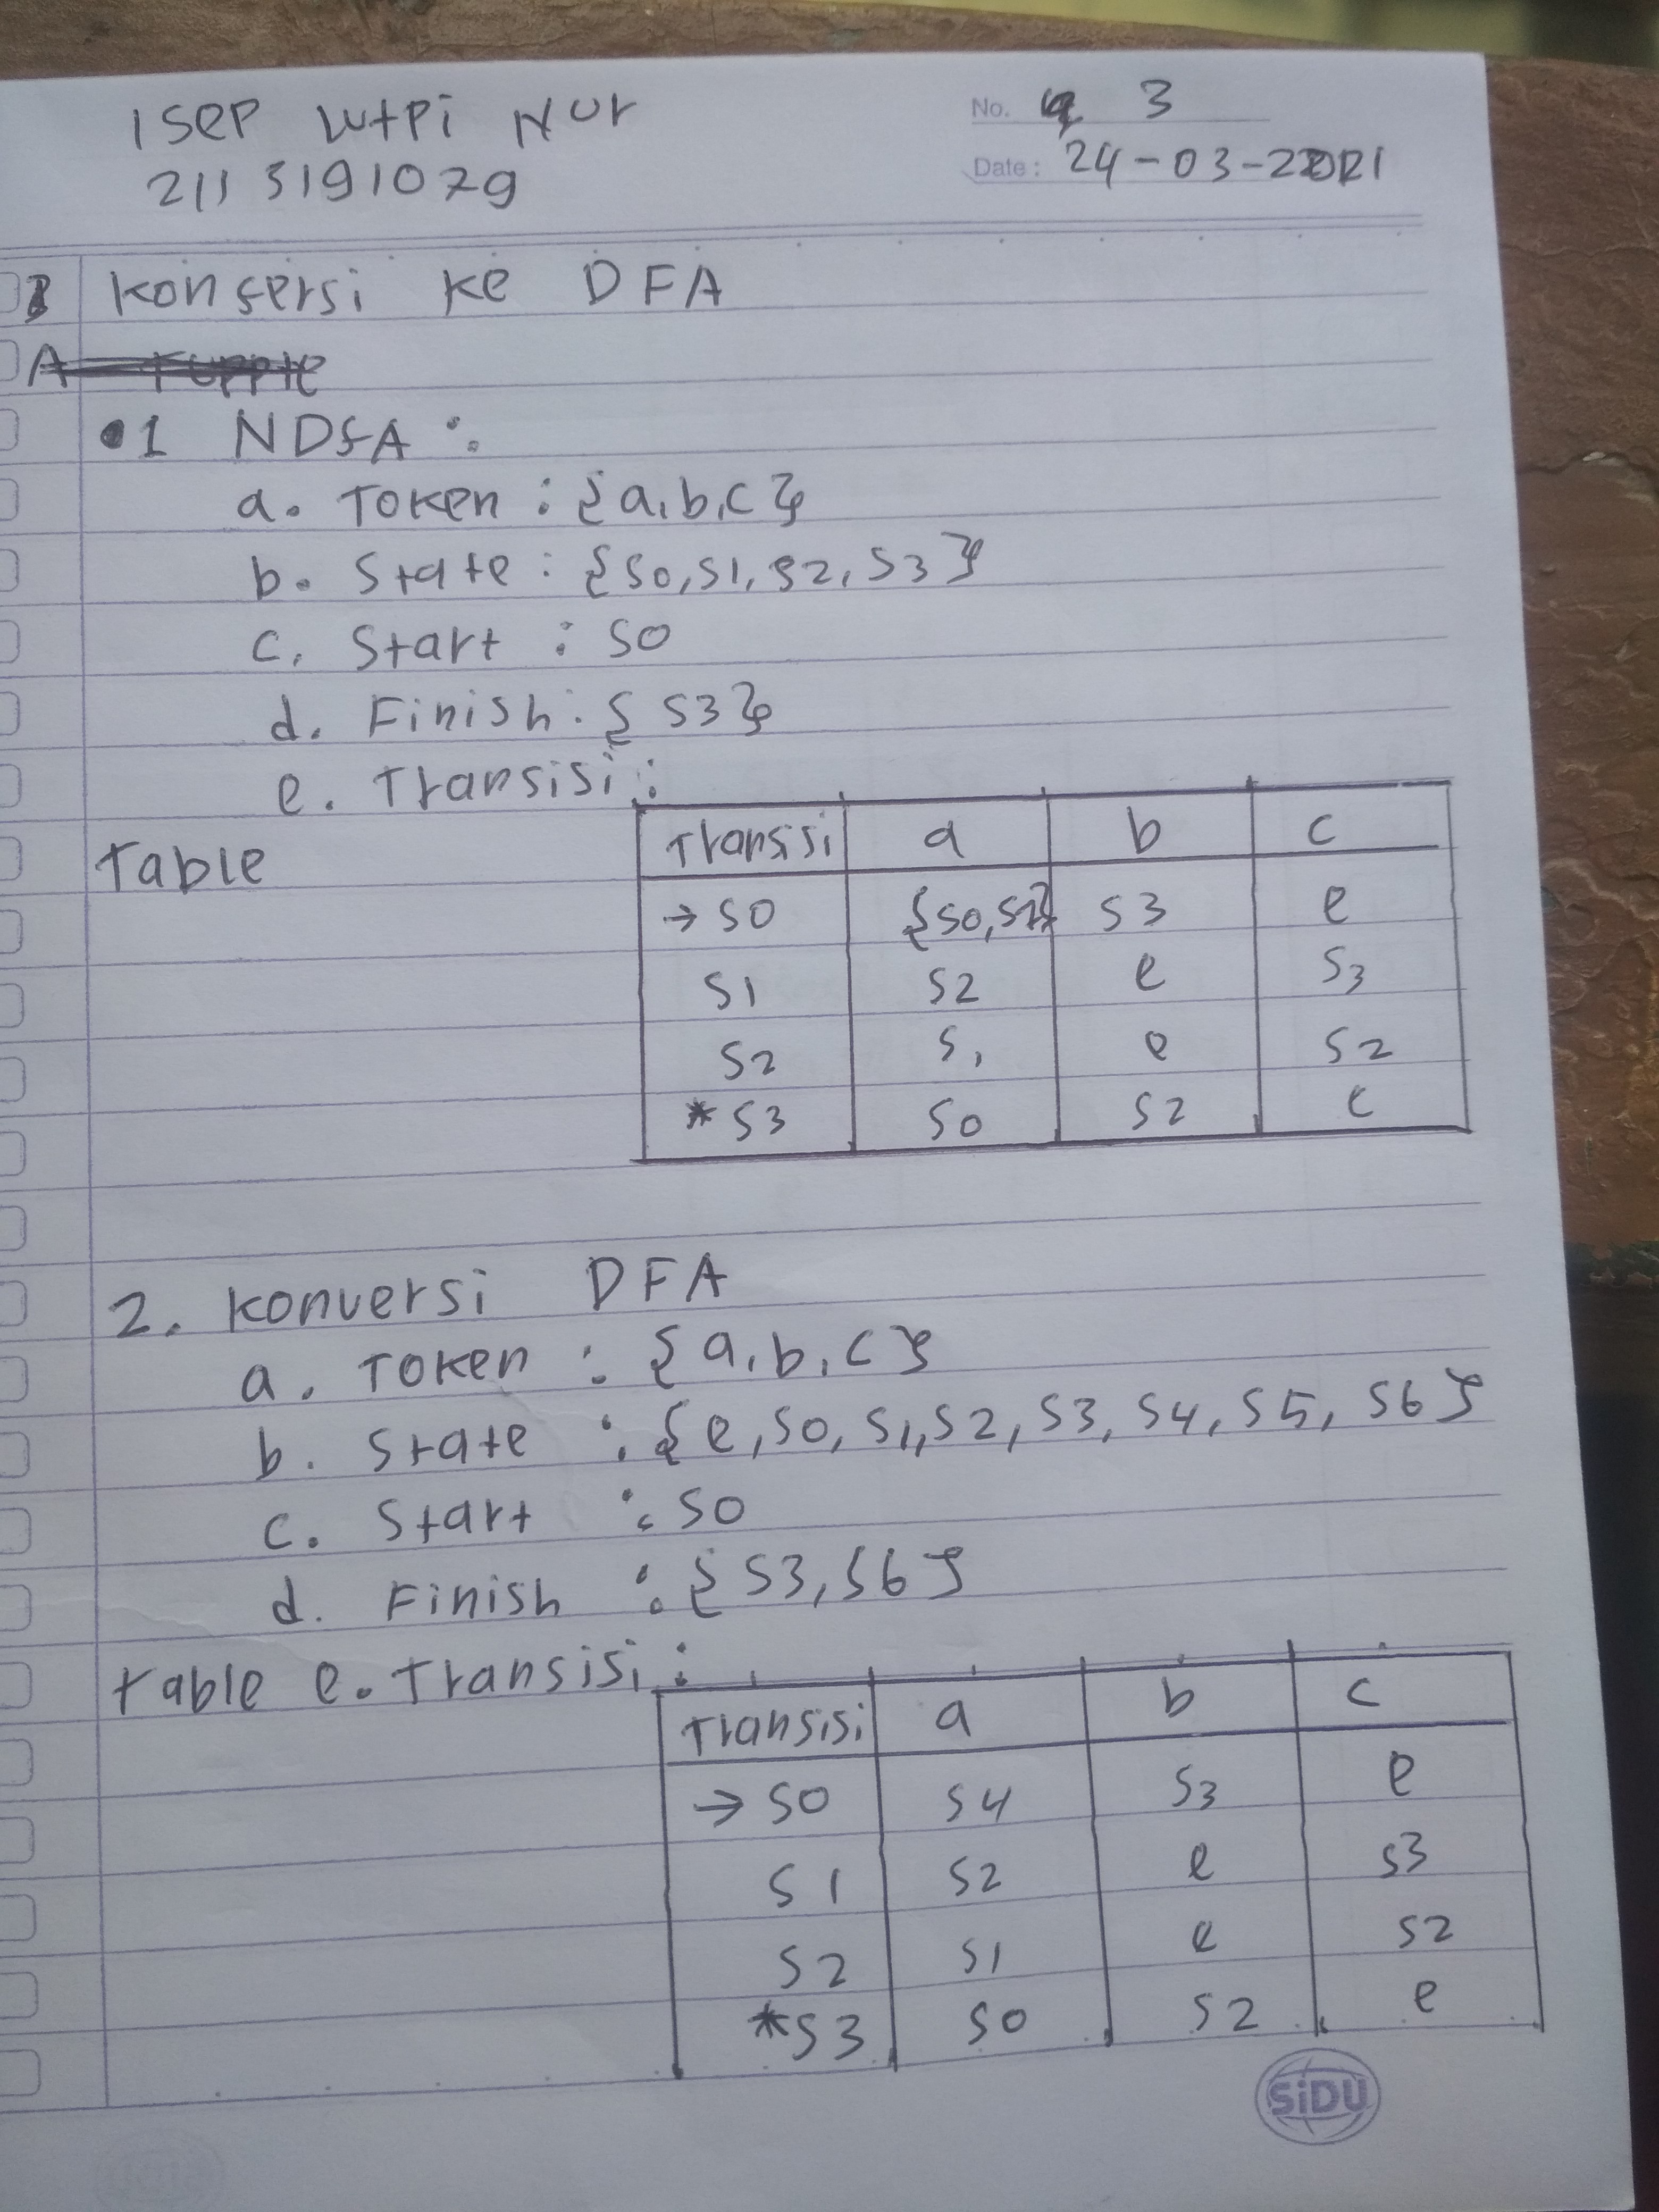 Isep Lutpi Nur
2113191079
No. 3
Date: 24-03-2021
Konfersi ke DFA
A
1 NDFA :
a. Token : {a,b,c}
b. State : {S0,S1,S2,S3}
c. Start : S0
d. Finish : {S3}
e. Transisi :
Table
Transisi a b c
→ S0 {S0,S2} S3 e
S1 S2 e S3
S2 S1 e S2
* S3 S0 S2 e
2. Konversi DFA
a. Token : {a,b,c}
b. State : {e,S0,S1,S2,S3,S4,S5,S6}
c. Start : S0
d. Finish : {S3,S6}
Table e. Transisi :
Transisi a b c
→ S0 S4 S3 e
S1 S2 e S3
S2 S1 e S2
*S3 S0 S2 e
SiDU